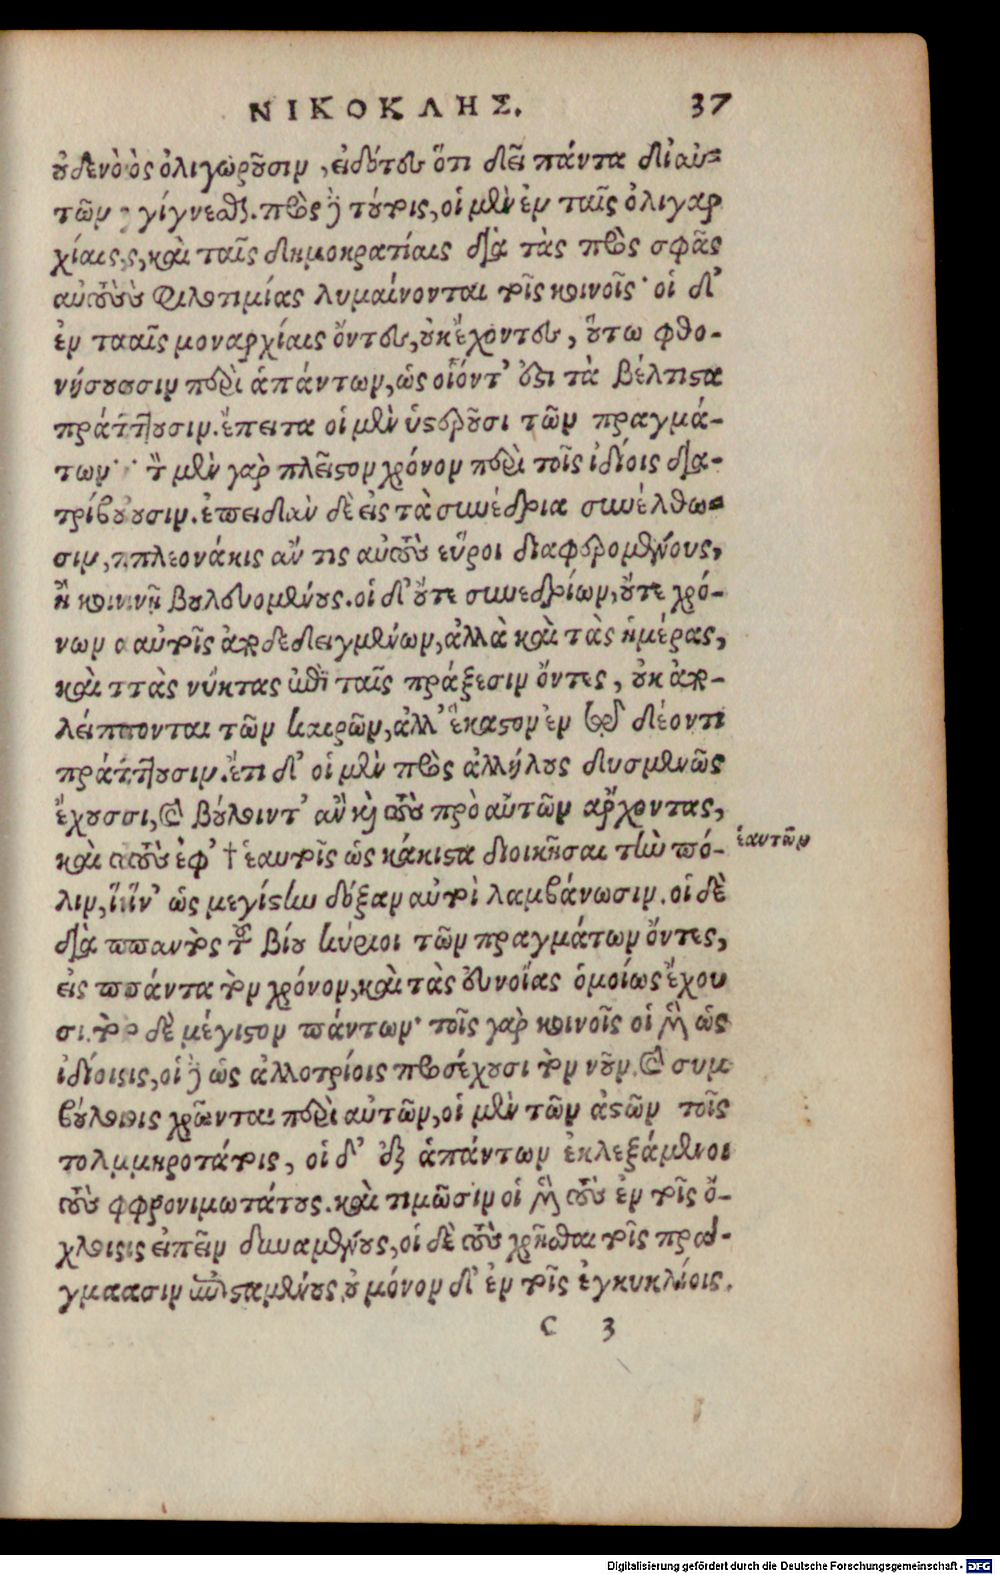 ΝΙΚΟΚΛΗΣ. 37
οὐδενὸς ὀλιγωροῦσιν, εἰδότες ὅτι δεῖ πάντα δι' αὑ=
τῶν γίγνεσθαι. πρὸς δὲ τούτοις, οἱ μὲν ἐν ταῖς ὀλιγαρ
χίαις, καὶ ταῖς δημοκρατίαις διὰ τὰς πρὸς σφᾶς
αὐτοὺς φιλοτιμίας λυμαίνονται τοῖς κοινοῖς· οἱ δ'
ἐν ταῖς μοναρχίαις ὄντες, οὐκ ἔχοντες, ὅτῳ φθο-
νήσουσιν περὶ ἁπάντων, ὡς οἷόντ' ἐστὶ τὰ βέλτιστα
πράττουσιν. ἔπειτα οἱ μὲν ὑστεροῦσι τῶν πραγμά-
των· τὸν μὲν γὰρ πλεῖστον χρόνον περὶ τοῖς ἰδίοις δια-
τρίβουσιν. ἐπειδὰν δὲ εἰς τὰ συνέδρια συνέλθω=
σιν, πλεονάκις ἄν τις αὐτοὺς εὕροι διαφερομένους,
ἢ κοινῇ βουλευομένους. οἱ δ' οὔτε συνεδρίων, οὔτε χρό-
νων αὐτοῖς ἀποδεδειγμένων, ἀλλὰ καὶ τὰς ἡμέρας,
καὶ τὰς νύκτας ἐπὶ ταῖς πράξεσιν ὄντες, οὐκ ἀπο-
λείπονται τῶν καιρῶν, ἀλλ' ἕκαστον ἐν τῷ δέοντι
πράττουσιν. ἔτι δ' οἱ μὲν πρὸς ἀλλήλους δυσμενῶς
ἔχουσι, καὶ βούλοιντ' ἂν καὶ τοὺς πρὸ αὑτῶν ἄρχοντας,
καὶ τοὺς ἐφ' † ἑαυτοῖς ὡς κάκιστα διοικῆσαι τὴν πό-
ἑαυτῶν
λιν, ἵν' ὡς μεγίστην δόξαν αὐτοὶ λαμβάνωσιν. οἱ δὲ
διὰ παντὸς τοῦ βίου κύριοι τῶν πραγμάτων ὄντες,
εἰς πάντα τὸν χρόνον, καὶ τὰς εὐνοίας ὁμοίως ἔχου
σι. τὸ δὲ μέγιστον πάντων· τοῖς γὰρ κοινοῖς οἱ μὲν ὡς
ἰδίοις, οἱ δὲ ὡς ἀλλοτρίοις προσέχουσι τὸν νοῦν. καὶ συμ
βούλοις χρῶνται περὶ αὐτῶν, οἱ μὲν τῶν ἀστῶν τοῖς
τολμηροτάτοις, οἱ δ' ἐξ ἁπάντων ἐκλεξάμενοι
τοὺς φρονιμωτάτους. καὶ τιμῶσιν οἱ μὲν τοὺς ἐν τοῖς ὄ-
χλοις εἰπεῖν δυναμένους, οἱ δὲ τοὺς χρῆσθαι τοῖς πρά-
γμασιν ἐπισταμένους. οὐ μόνον δ' ἐν τοῖς ἐγκυκλίοις.
C 3
Digitalisierung gefördert durch die Deutsche Forschungsgemeinschaft - DFG